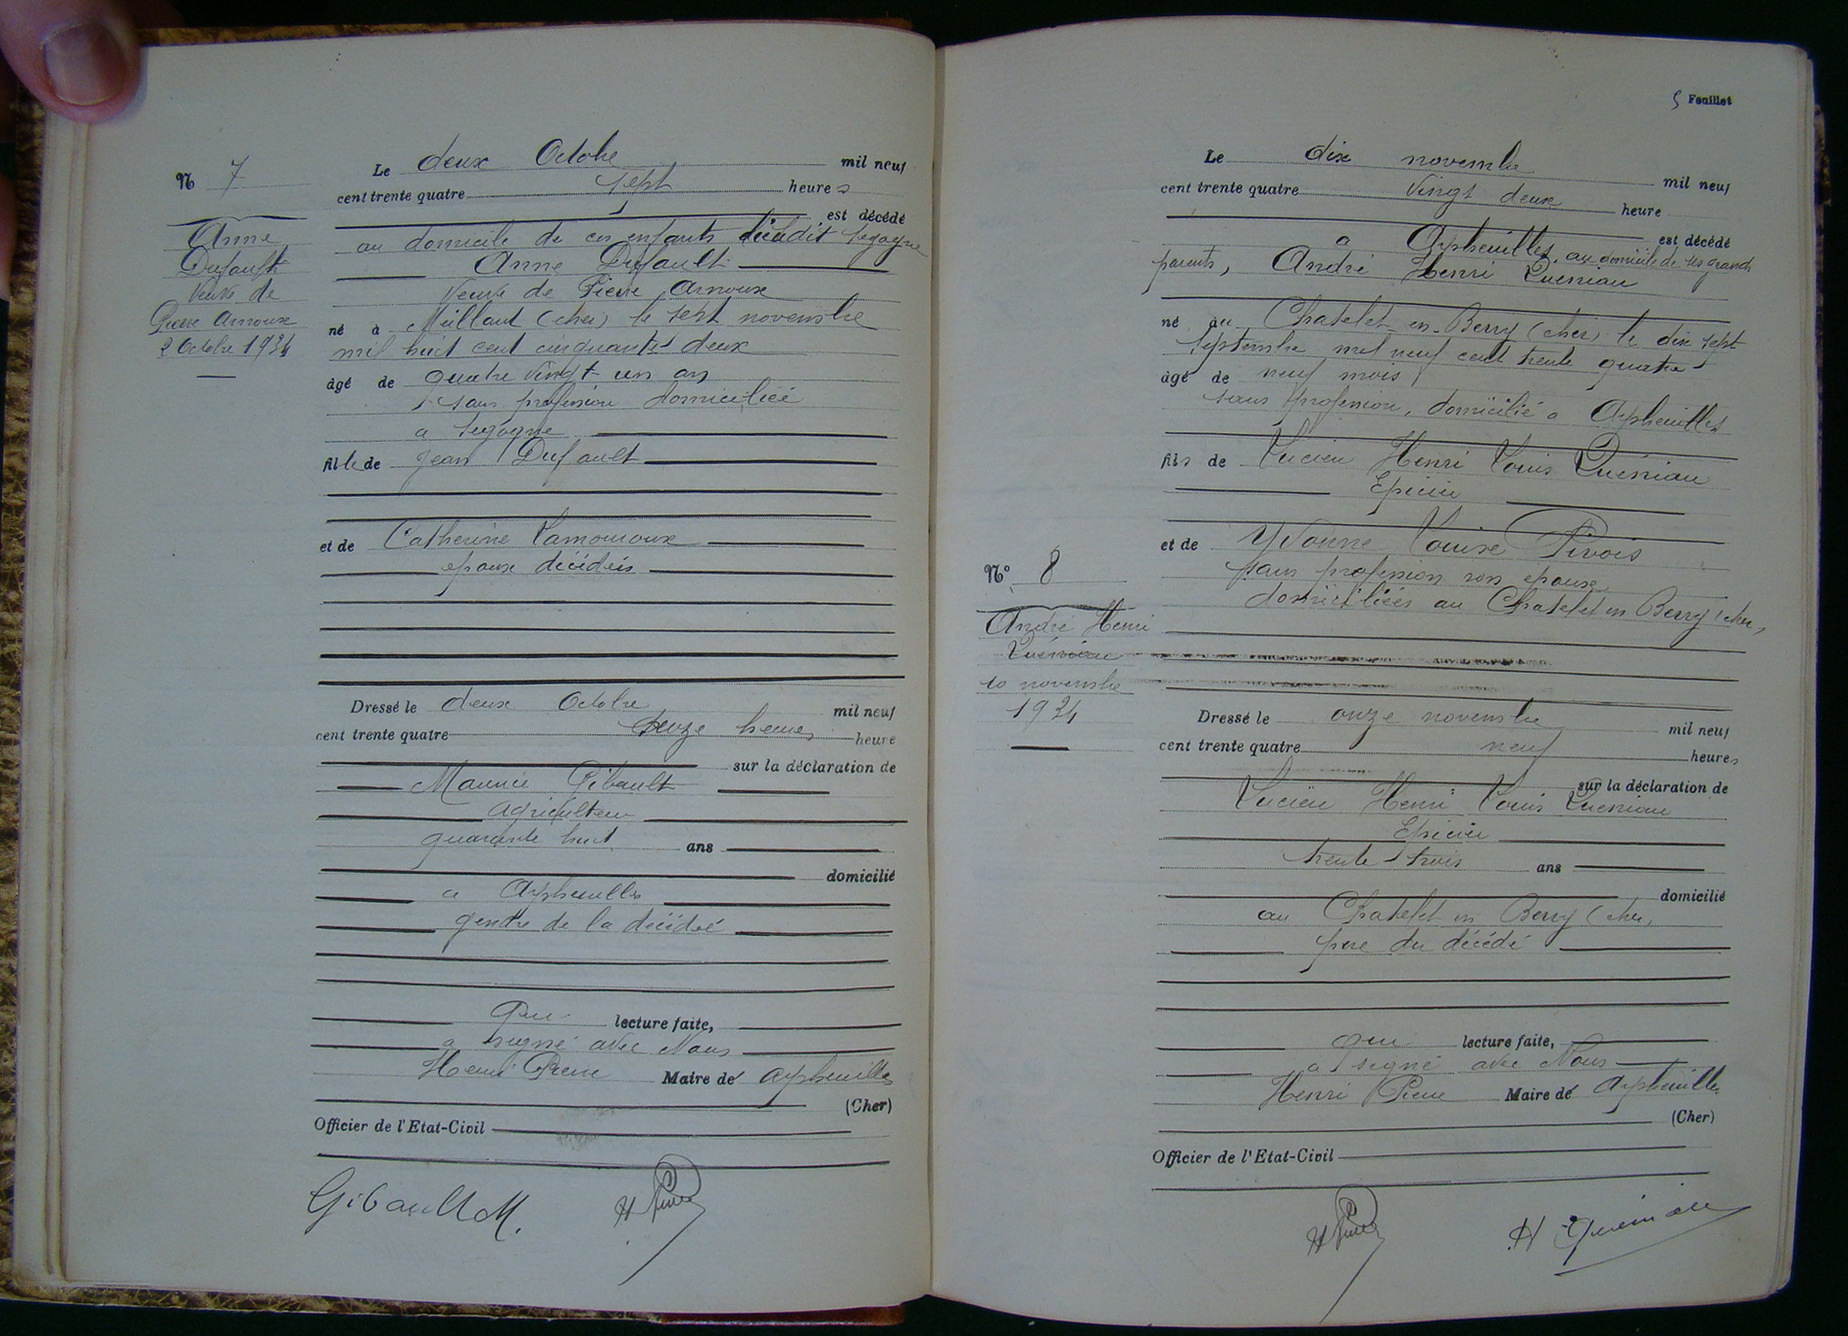 N 7
Anne
Dufault
Veuve de
Pierre Arnoux
2 Octobre 1934
Le deux Octobre mil neuf
cent trente quatre sept heures
est décédé
au domicile de ces enfants lieudit Segogne
Anne Dufault
Veuve de Pierre Arnoux
né à Meillant (cher) le sept novembre
mil huit cent cinquante deux
âgé de quatre vingt un ans
sans profession domiciliée
a Segogne
fille de Jean Dufault
et de Catherine Lamouroux
epoux décédés
Dressé le deux Octobre mil neuf
cent trente quatre onze heures heure
sur la déclaration de
Maurice Gibault
agriculteur
quarante huit ans
domicilié
a Arpheuilles
gendre de la décédée
Qui lecture faite,
a signé avec Nous
Henri Pierre Maire de Arpheuilles
(Cher)
Officier de l'Etat-Civil
Gibault M.
H Pierre
5 Feuillet
N° 8
André Henri
Quéniau
10 novembre
1934
Le dix novembre mil neuf
cent trente quatre vingt deux heure
est décédé
a Arpheuilles, au domicile de ses grands
parents, André Henri Quéniau
né au Chatelet-en-Berry (cher) le dix sept
septembre mil neuf cent trente quatre
âgé de neuf mois
sans profession, domicilié a Arpheuilles
fils de Lucien Henri Louis Quéniau
Epicier
et de Yvonne Louise Pivois
sans profession son epouse
domiciliés au Chatelet en Berry (cher)
Dressé le onze novembre mil neuf
cent trente quatre neuf heures
sur la déclaration de
Lucien Henri Louis Quéniau
Epicier
trente trois ans
domicilié
au Chatelet en Berry (cher)
père du décédé
qui lecture faite,
a signé avec Nous
Henri Pierre Maire de Arpheuilles
(Cher)
Officier de l'Etat-Civil
H Pierre
H Quéniau